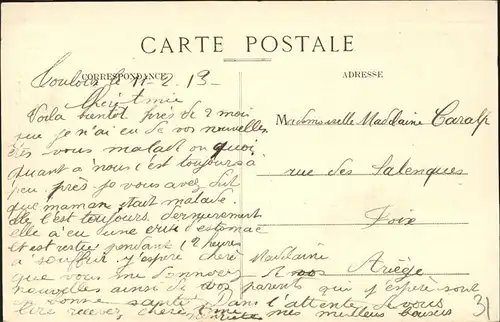 CARTE POSTALE
CORRESPONDANCE
ADRESSE
Toulouse le 11-2 13-
Chère Amie
Voila bientot près de 2 mois
que je n'ai eu de vos nouvelles
êtes-vous malade ou quoi
quant à nous c'est toujours à
peu près je vous avez dit
que maman était malade.
elle l'est toujours. dernierement
elle a eu une crise d'estomac
et est restée pendant 12 heures
à souffrir. j'espère chère Madelaine
que vous me donnerez
nouvelles ainsi de vos parents qui j'espère sont
en bonne santée. Dans l'attente de vous
lire recevez, chère mes meilleurs baisers
Mademoiselle Madelaine Caralp
rue des Salenques
Foix
Ariège
31